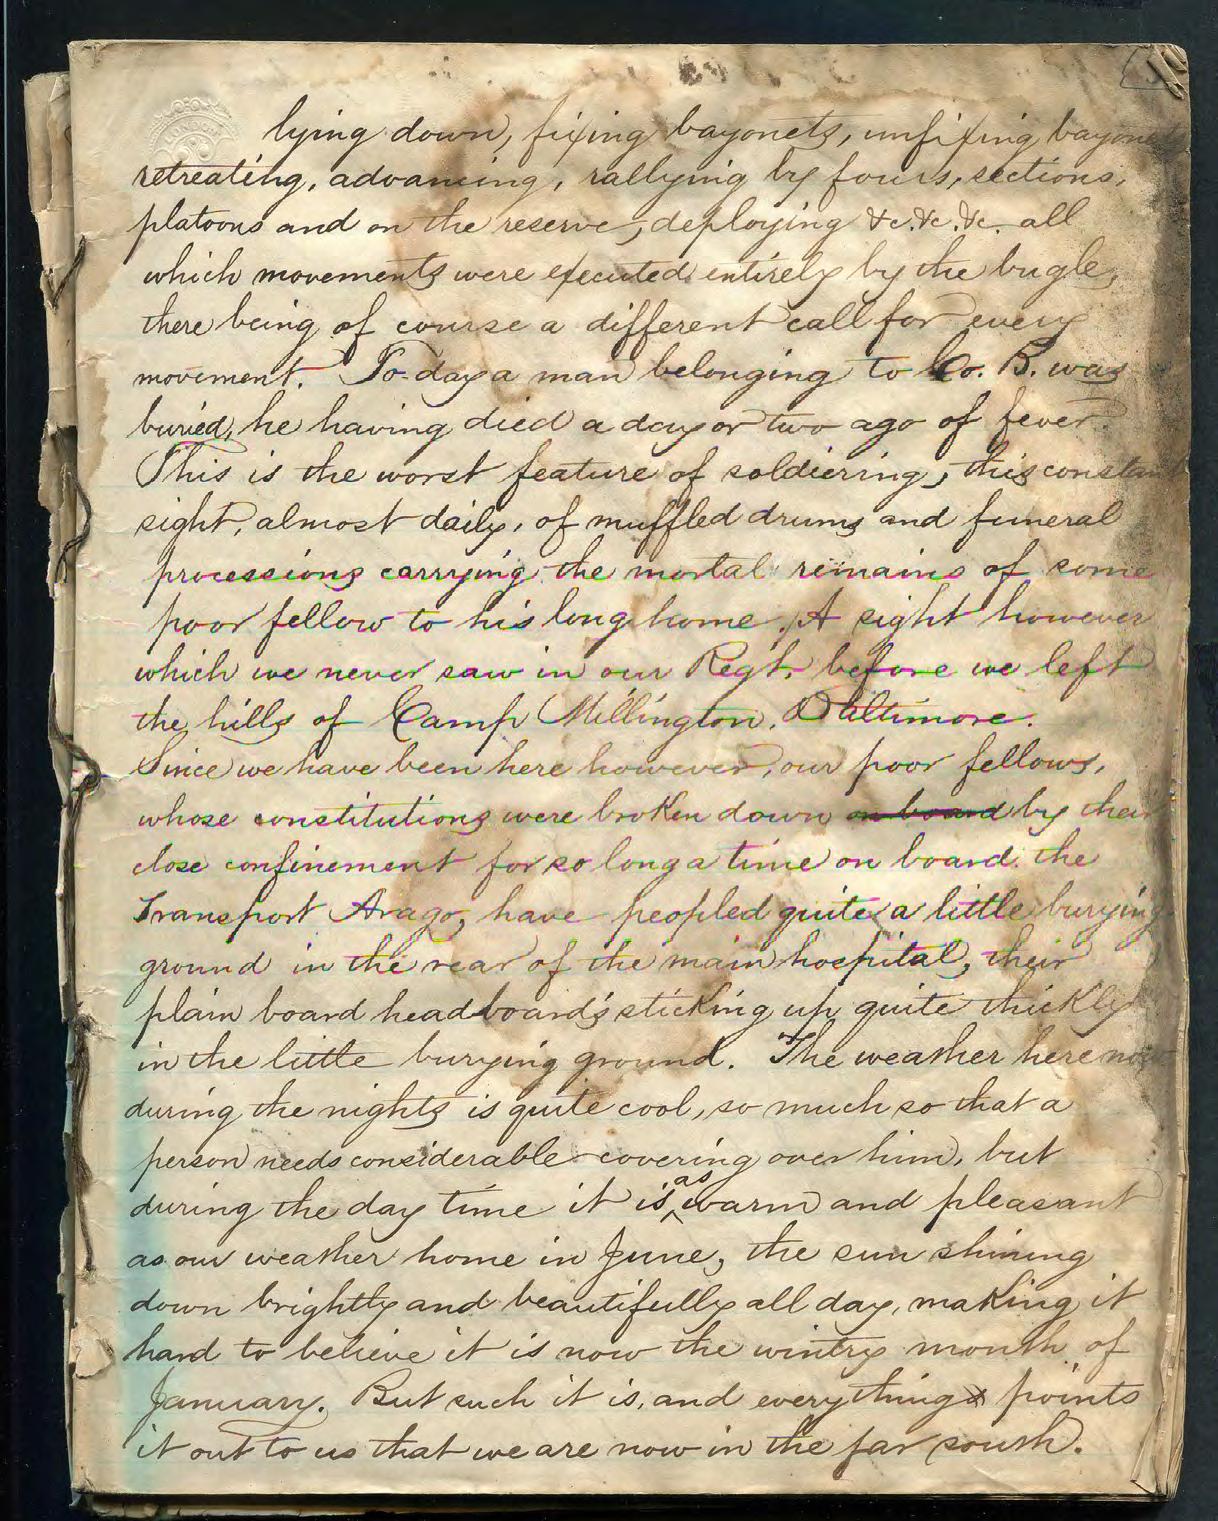 LONDON
lying down, fixing bayonets, unfixing bayonets
retreating, advancing, rallying by fours, sections,
platoons and on the reserve, deploying &c. &c. &c. all
which movements were executed entirely by the bugle,
there being of course a different call for every
movement. To-day a man belonging to Co. B. was
buried, he having died a day or two ago of fever.
This is the worst feature of soldiering, this constant
sight, almost daily, of muffled drums and funeral
processions carrying the mortal remains of some
poor fellow to his long home. A sight however
which we never saw in our Regt. before we left
the hills of Camp Millington, Baltimore.
Since we have been here however, our poor fellows,
whose constitutions were broken down on board by their
close confinement for so long a time on board the
Transport Arago, have peopled quite a little burying
ground in the rear of the main hospital, their
plain board headboards sticking up quite thickly
in the little burying ground. The weather here now
during the nights is quite cool, so much so that a
person needs considerable covering over him, but
during the day time it is as warm and pleasant
as our weather home in June, the sun shining
down brightly and beautifully all day, making it
hard to believe it is now the wintry month of
January. But such it is, and everything points
it out to us that we are now in the far south.